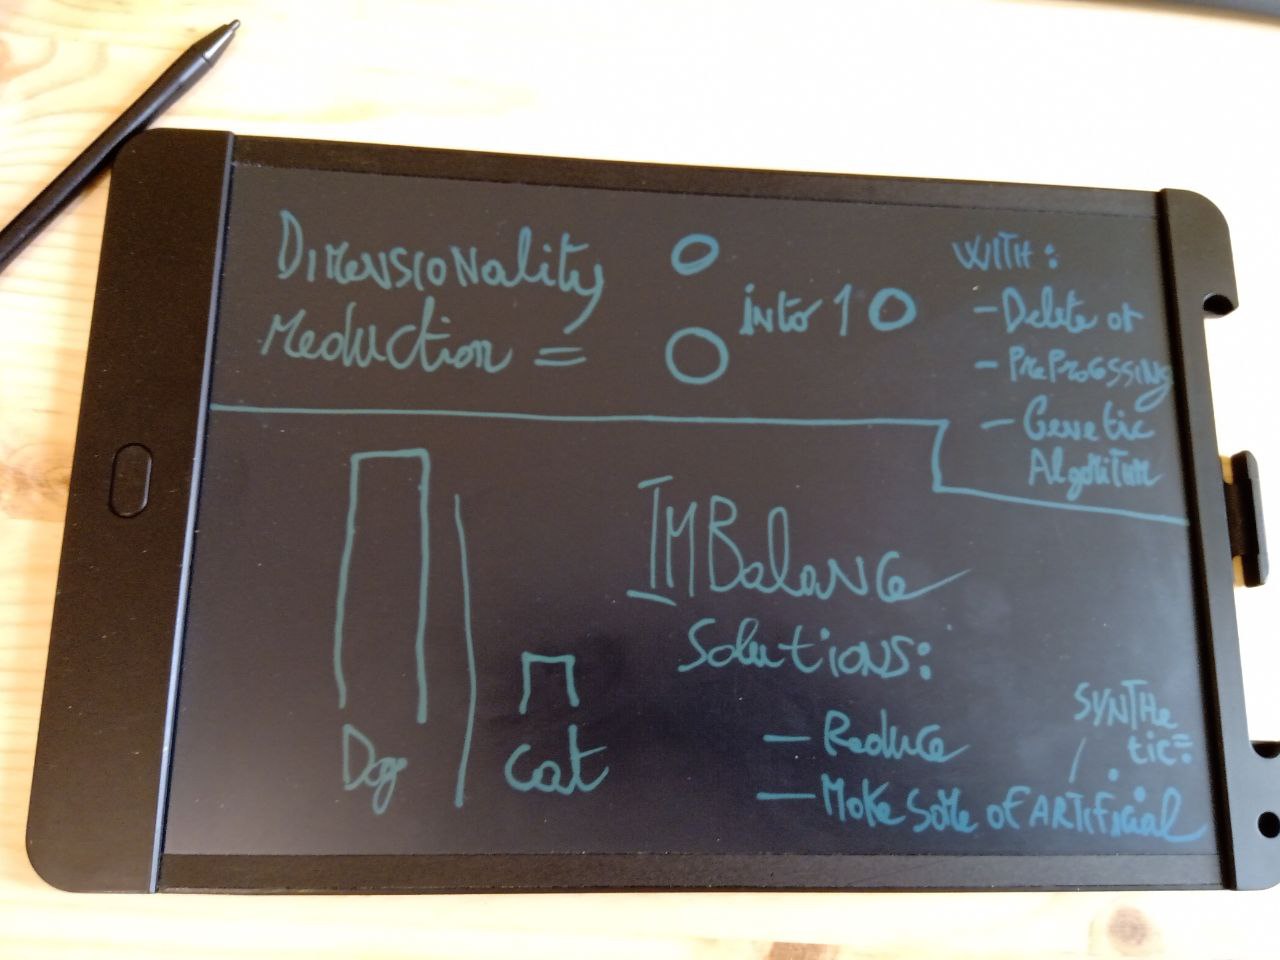 Dimensionality
reduction =
into 1
WITH:
- Delete or
- PreProcessing
- Genetic
Algoritm
Dog
cat
IMBalance
Solutions:
- Reduce
- Make some of ARTificial
SYNTHe
tic=